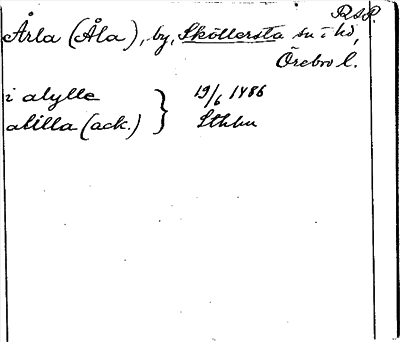 RSP
Årla (Åla), by, Sköllersta sn i hd,
Örebro l.
i alylle } 19/6 1486
alilla (ack.) } Sthbu